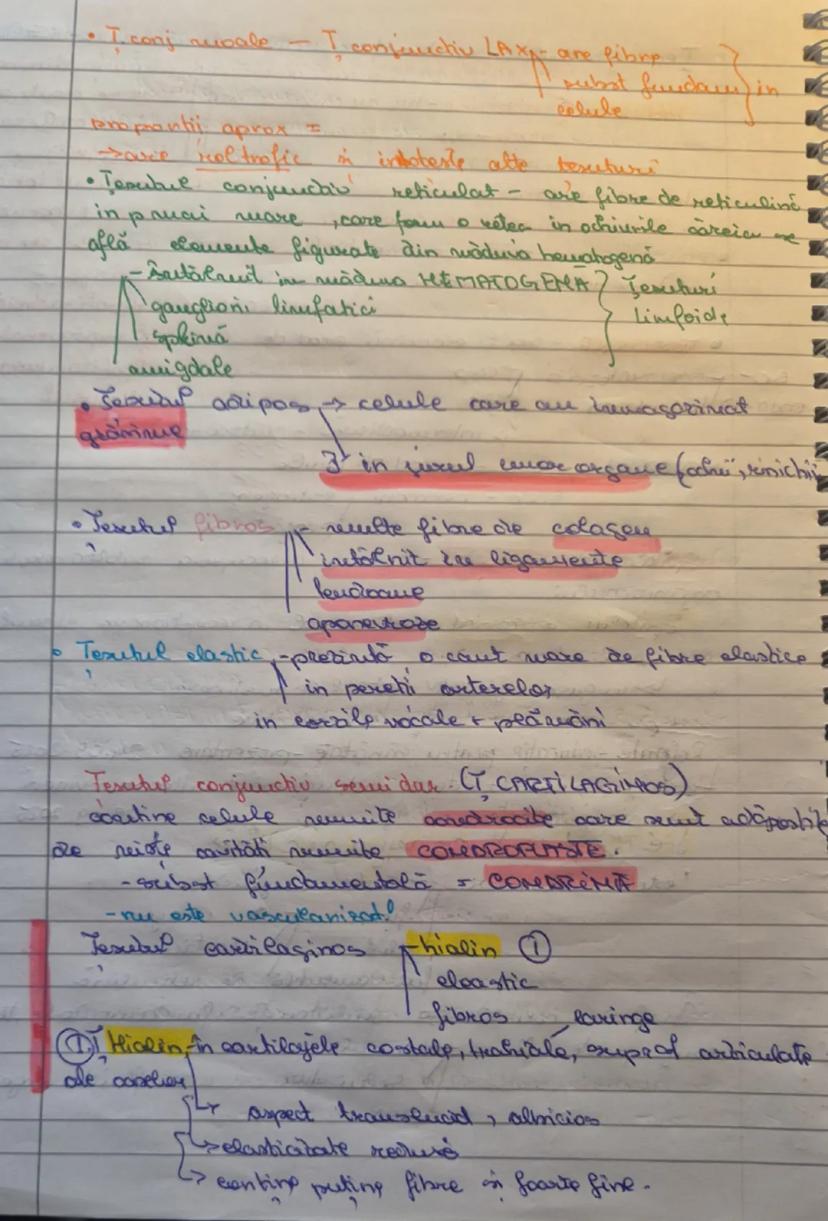 • Ț conj moale – Ț conjunctiv LAX – are fibre
subst fundam } in
celule
proporții aprox =
→ are rol trofic și însoțește alte țesuturi
• Țesutul conjunctiv reticulat – are fibre de reticulină
in p mai mare, care form o rețea in ochiurile căreia se
află elemente figurate din măduva hematogenă
– Întâlnit in măduva HEMATOGENA } Țesuturi
ganglioni limfatici
Limfoide
splină
amigdale
• Țesutul adipos → celule care au inmagazinat
grăsime
in jurul unor organe (ochi, rinichi
• Țesutul fibros – multe fibre de colagen
intâlnit in ligamente
tendoane
aponevroze
• Țesutul elastic – prezintă o cant mare de fibre elastice
in pereții arterelor
in corzile vocale + plămâni
Țesutul conjunctiv semidur (Ț CARTILAGINOS)
conține celule numite condrocite care sunt adăpostite
de niște cavități numite CONDROPLASTE.
- subst fundamentală = CONDRINĂ
- nu este vascularizat!
Țesutul cartilaginos – hialin ①
eloastic
fibros
laringe
① Ț Hialin, în cartilajele costale, traheale, supraf articulate
ale oaselor
→ aspect translucid, albicios
→ elasticitate redusă
→ conține puține fibre și foarte fine.